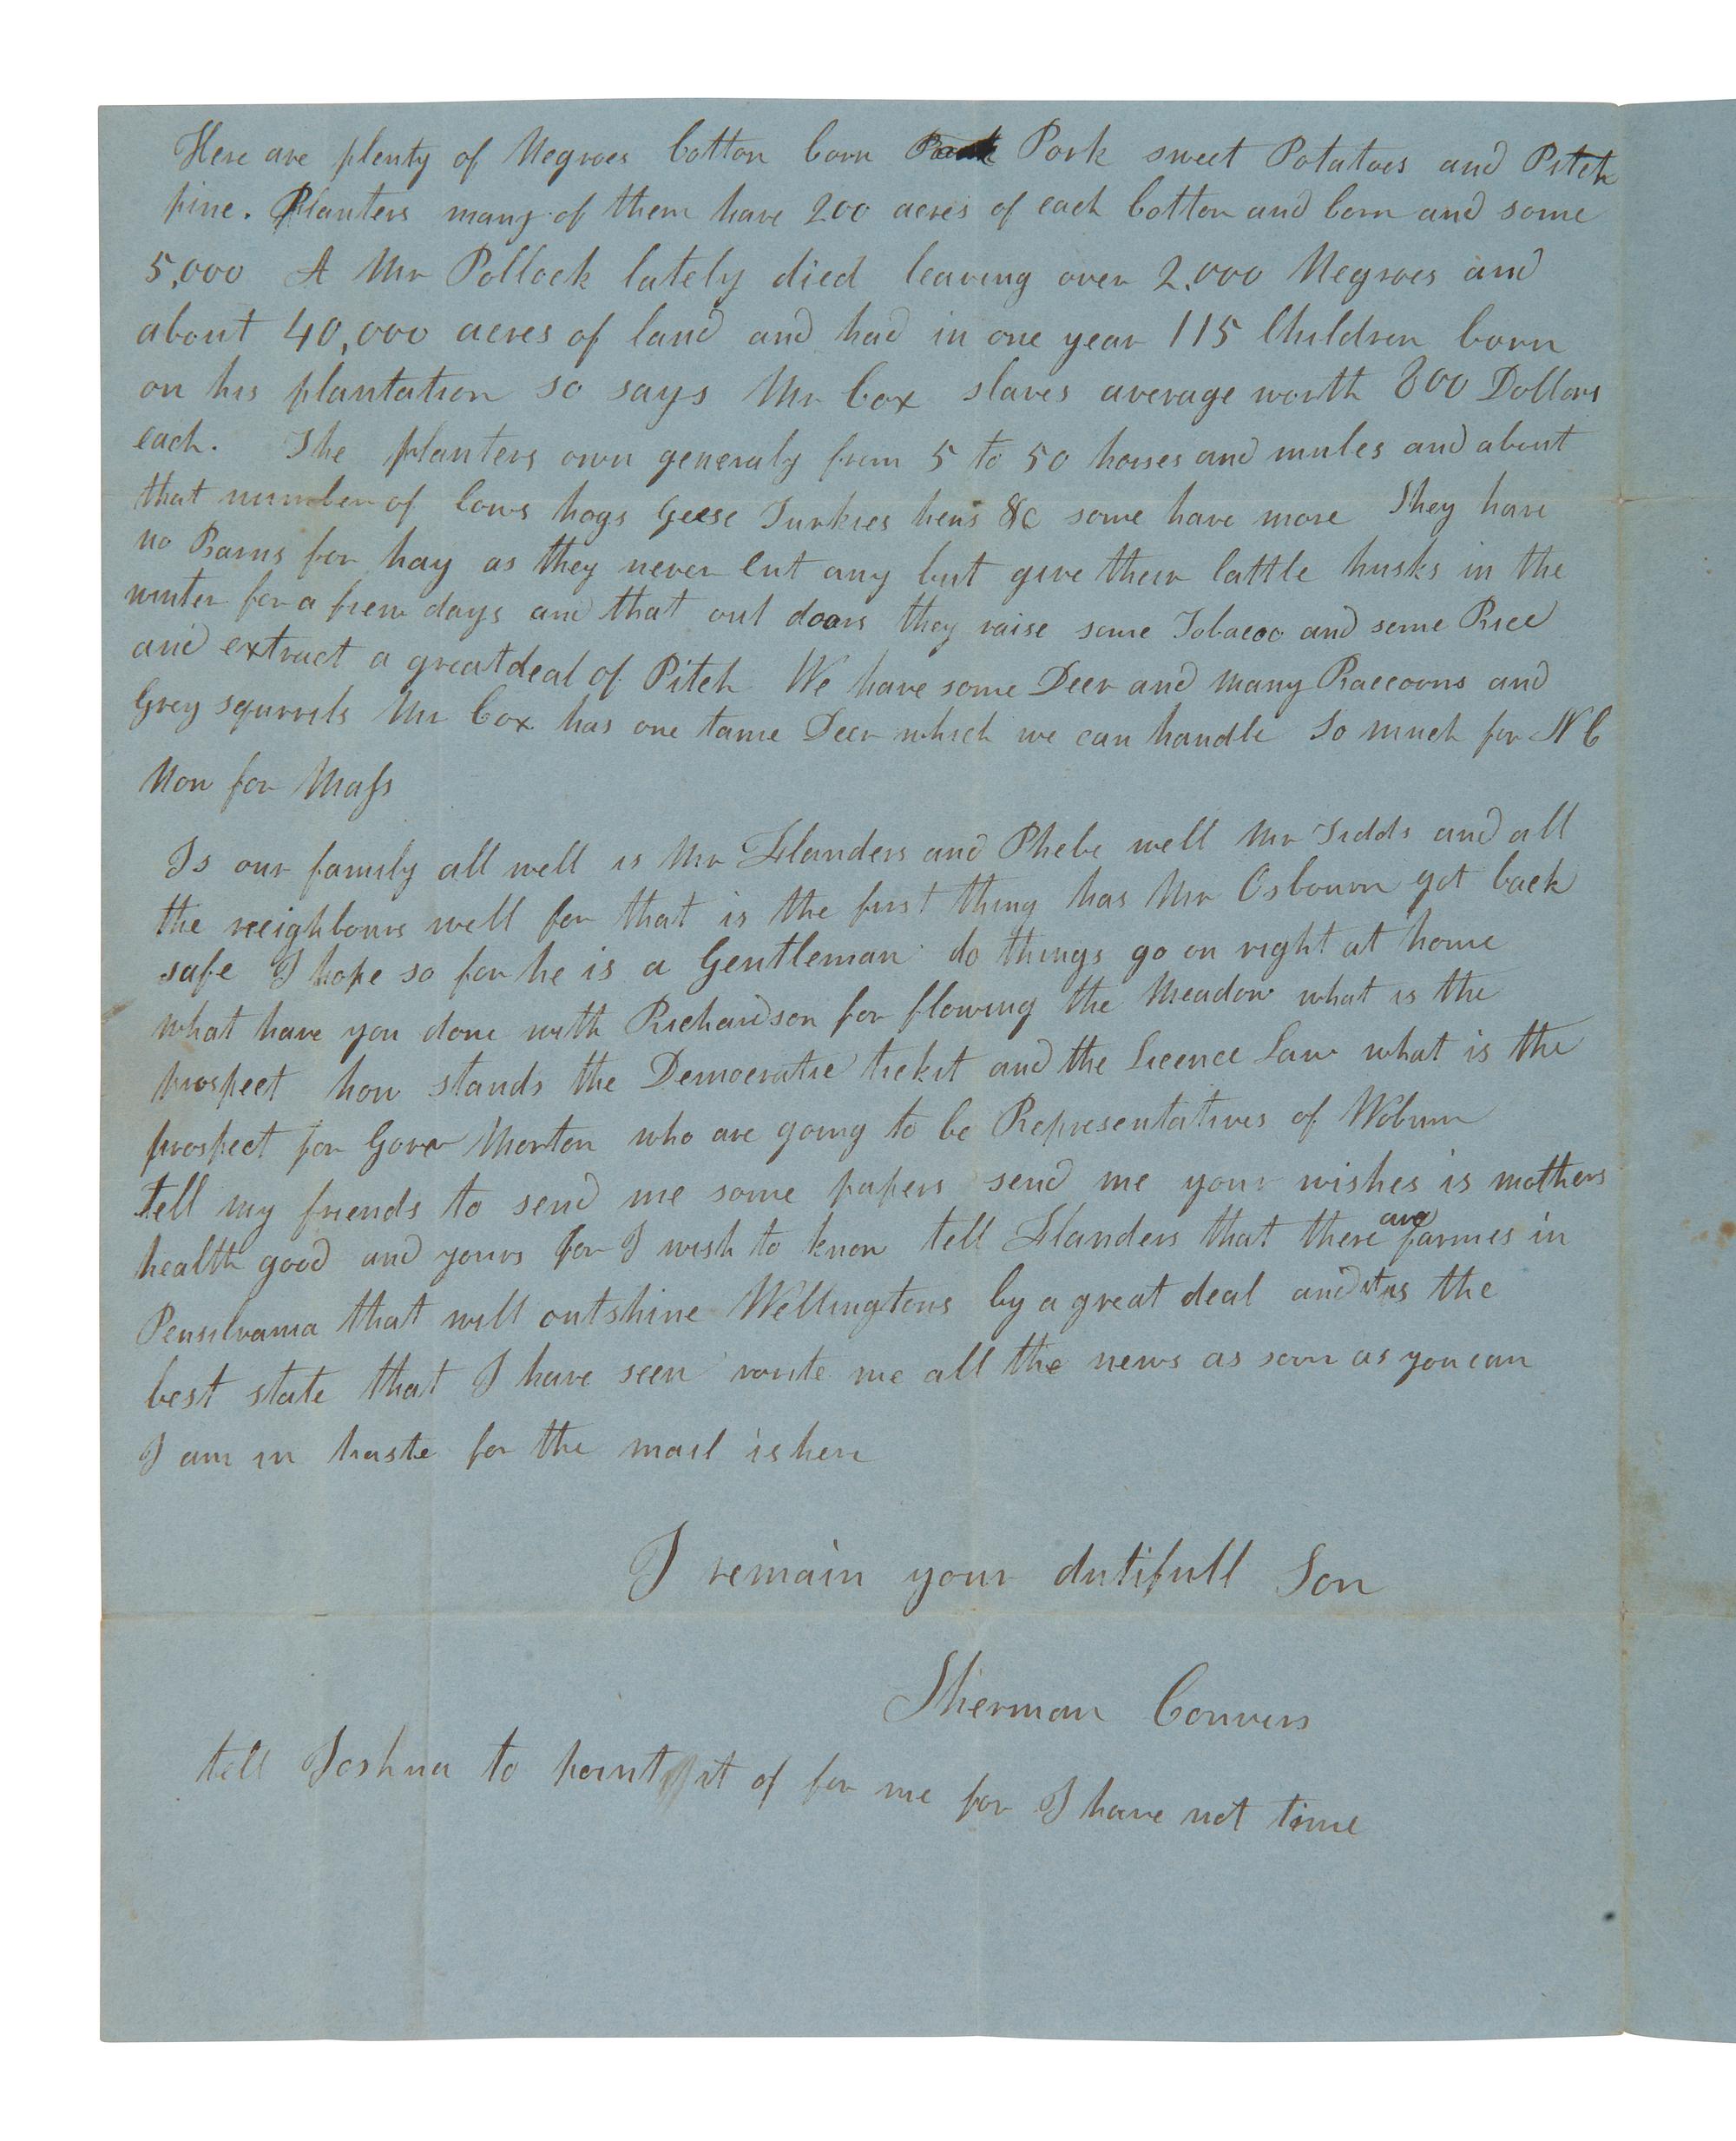 Here are plenty of Negroes Cotton Corn Pork sweet Potatoes and Pitch
pine. Planters many of them have 200 acres of each Cotton and Corn and some
5,000 A Mr Pollock lately died leaving over 2,000 Negroes and
about 40,000 acres of land and had in one year 115 Children born
on his plantation so says Mr Cox slaves average worth 800 Dollars
each. The planters own generaly from 5 to 50 horses and mules and about
that number of Cows hogs Geese Turkies hens &c some have more They have
no Barns for hay as they never Cut any but give their Cattle husks in the
winter for a fiew days and that out doors they raise some Tobacoo and some Rice
and extract a great deal of Pitch We have some Deer and many Raccoons and
Grey squrrels Mr Cox has one tame Deer which we can handle So much for N C
Now for Mass
Is our family all well is Mr Flanders and Phebe well Mr Tidds and all
the neighbours well for that is the first thing has Mr Osbourn got back
safe I hope so for he is a Gentleman do things go on right at home
what have you done with Richardson for flowing the Meadow what is the
prospect how stands the Democratic tickit and the Licence Law what is the
prospect for Govr Morton who are going to be Representatives of Woburn
tell my friends to send me some papers send me your wishes is mothers
health good and yours for I wish to know tell Flanders that there are farmes in
Pensilvania that will outshine Wellingtons by a great deal and it is the
best state that I have seen write me all the news as soon as you can
I am in haste for the mail is here
I remain your dutifull Son
Sherman Convers
tell Joshua to point it of for me for I have not time